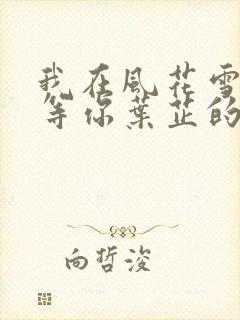 我在風花雪
等你葉芷的
向哲浚